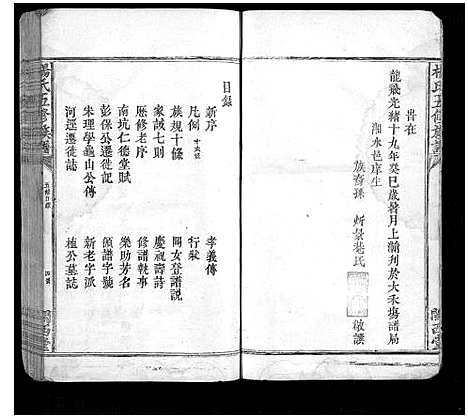 楊氏五修族譜
旹在
龍飛光緒十九年癸巳歲暑月上澣刋於大禾塲譜局
湘水邑庠生
族裔孫
氏
敬譔
關西堂
目錄
新序
凡例
族規十條
家誡七則
歷修老序
南坑仁德堂賦
彭保公遷徙誌
朱理學龜山公傳
河逕遷徙誌
孝義傳
行狀
閨女登譜說
慶祝壽詩
修譜執事
樂助芳名
領譜字號
新老字派
植公墓誌
楊氏五修族譜
五修目錄
關西堂